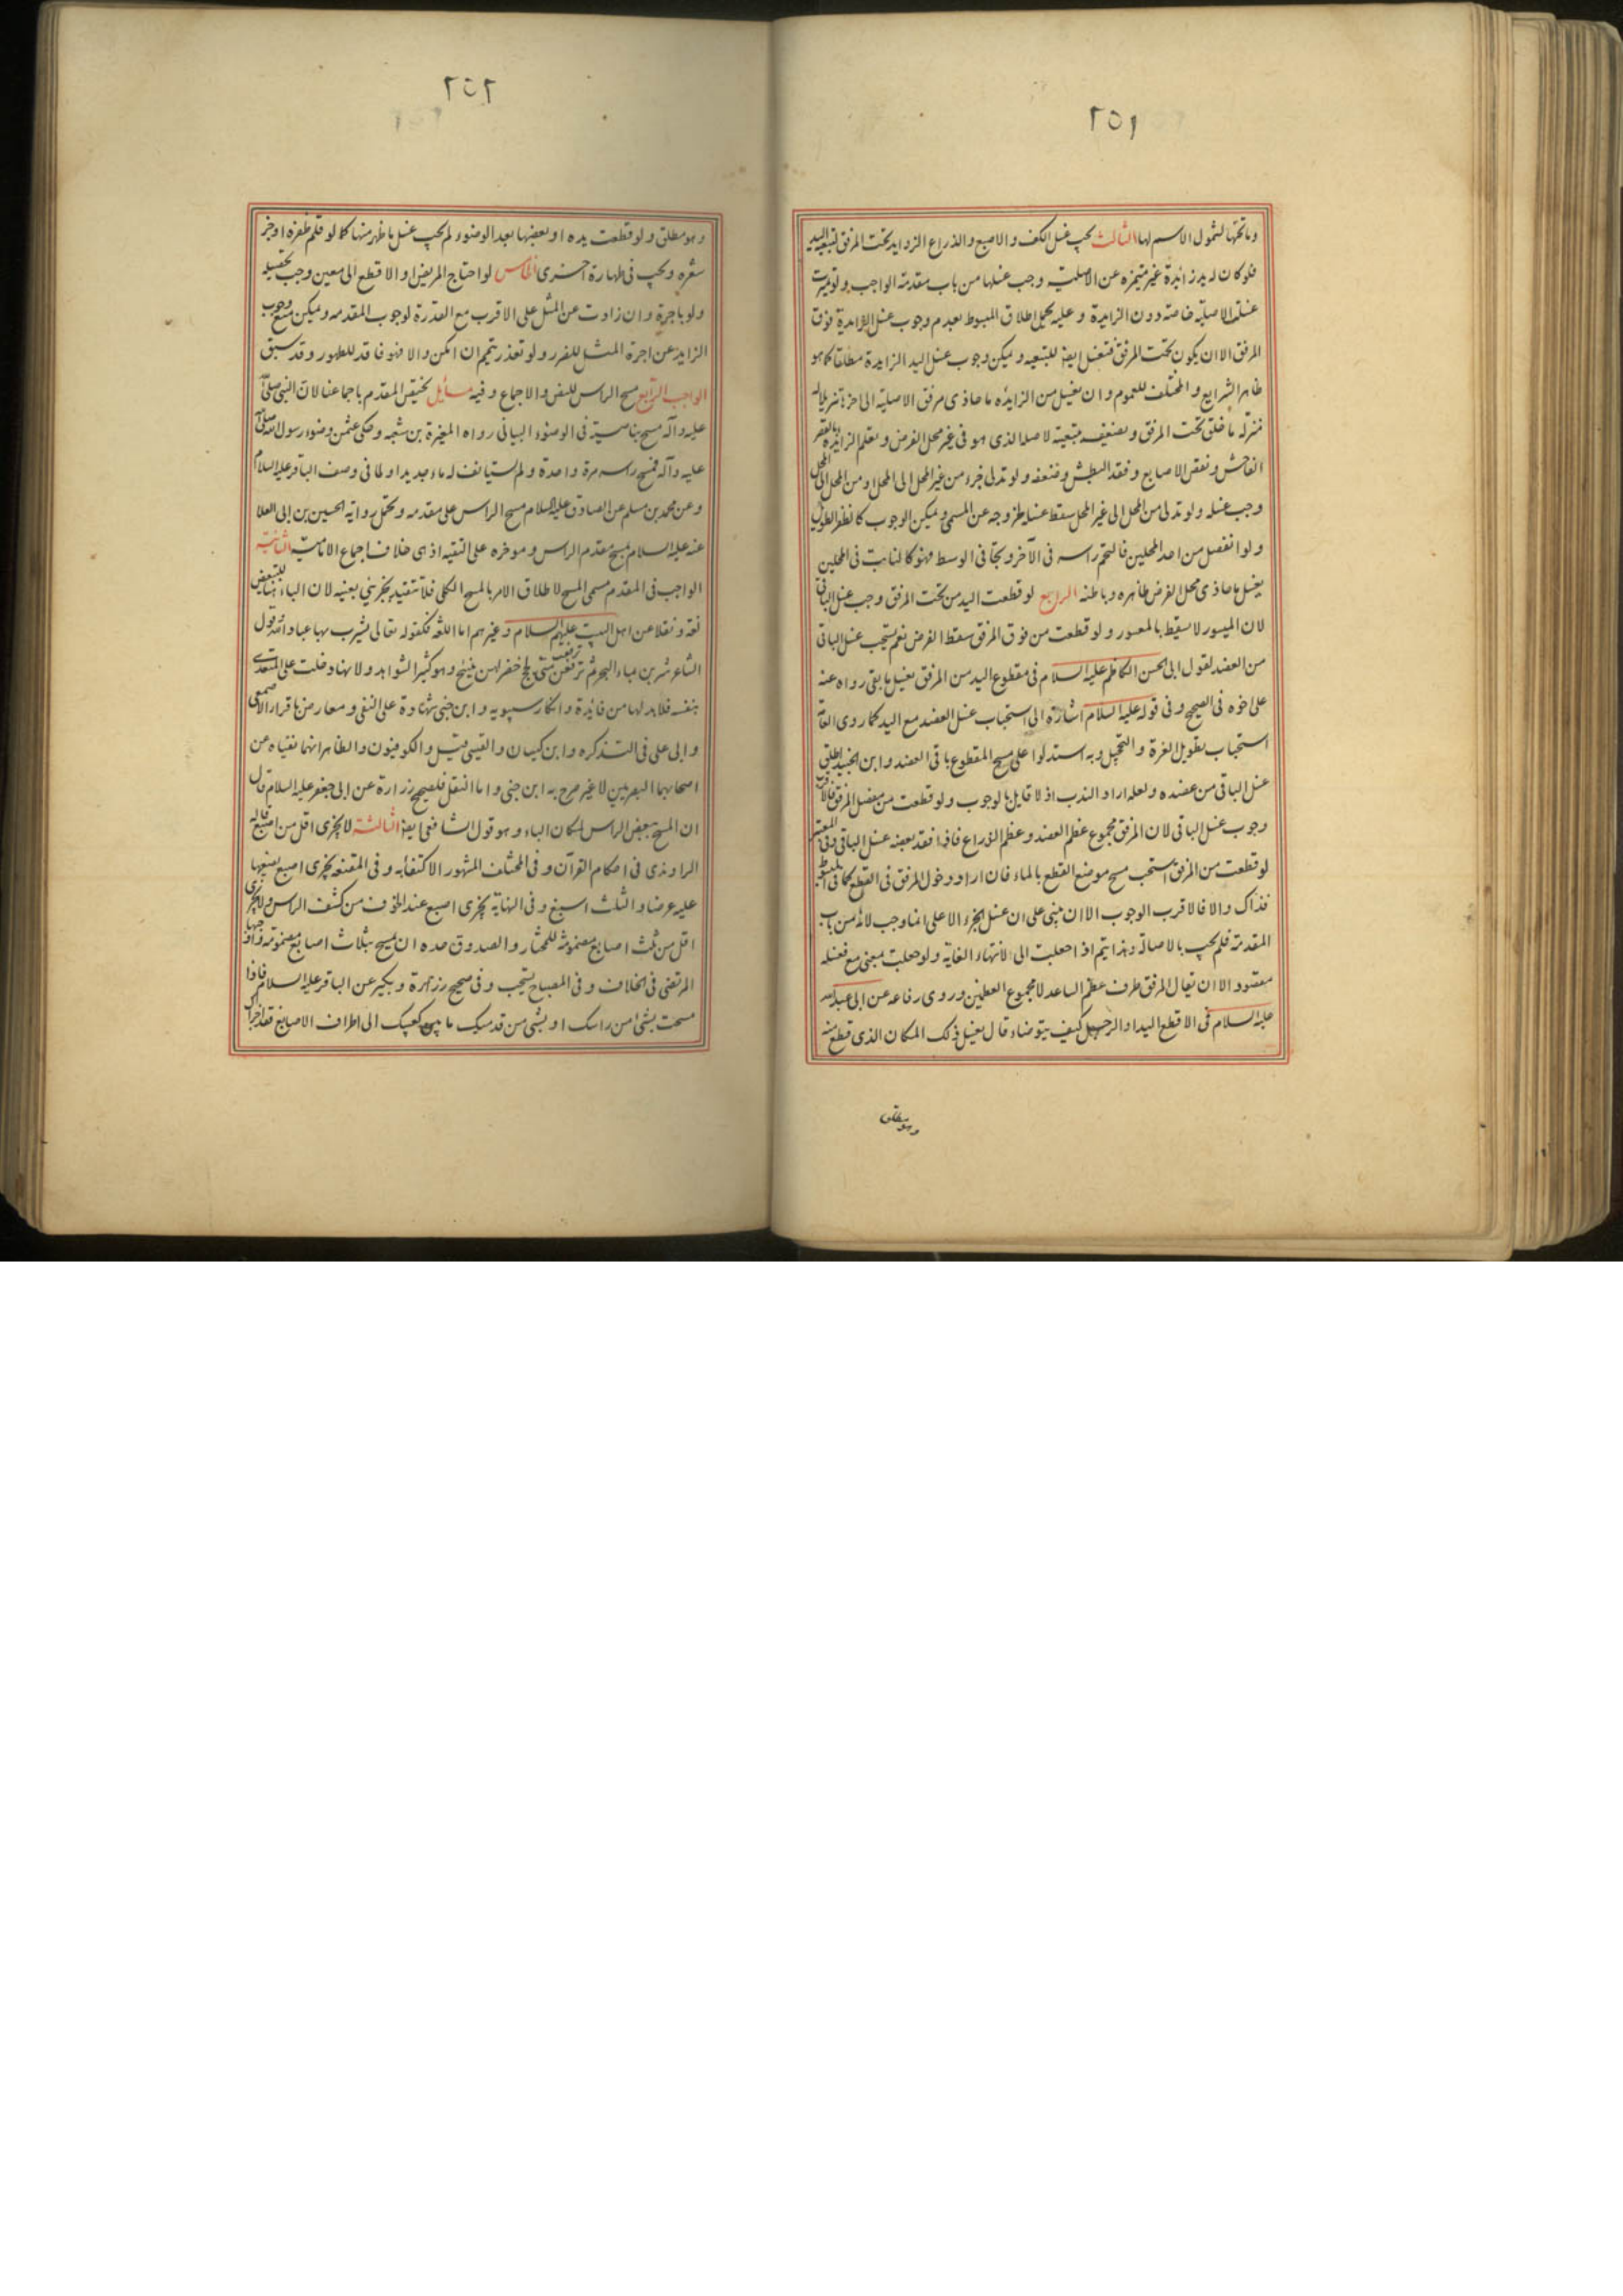 ٢٥١
وما تحتها لشمول الاسم لها الثالث يجب غسل الكف والاصبع والذراع الزوايد تحت المرفق لتبعية اليد
فلو كان له يد زائدة غير متميزه عن الاصلية وجب غسلها من باب مقدمة الواجب ولو تميزت
غسلت الاصلية خاصة دون الزايدة وعليه يحمل اطلاق المبسوط بعدم وجوب غسل الزايدة فوق
المرفق الا ان يكون تحت المرفق فتغسل ايضا للتبعيه ويمكن وجوب غسل اليد الزايدة مطلقا كما هو
ظاهر الشرايع والمختلف للعموم وان يغسل من الزايده ما حاذى مرفق الاصلية الى اخرها تنزيلا له
منزلة ما خلق تحت المرفق ويضعف بتبعيته لاصله الذي هو في غير محل الفرض وتعلم الزايدة بالقصر
الفاحش ونقص الاصابع وفقد البطش وضعفه ولو تدلى جزء من غير المحل الى المحل او من المحل الى المحل
وجب غسله ولو تدلى من المحل الى غير المحل سقط غسله لخروجه عن المسمى ويمكن الوجوب كالظفر الطويل
ولو انفصل من احد المحلين فالتحم راسه في الآخر وتجافى الوسط فهو كالنابت في المحلين
يغسل ما حاذى محل الفرض ظاهره وباطنه الرابع لو قطعت اليد من تحت المرفق وجب غسل الباقي
لان الميسور لا يسقط بالمعسور ولو قطعت من فوق المرفق سقط الفرض نعم يستحب غسل الباقي
من العضد لقول ابى الحسن الكاظم عليه السلام في مقطوع اليد من المرفق يغسل ما بقي رواه عنه
على اخوه في الصحيح وفي قوله عليه السلام اشارة الى استحباب غسل العضد مع اليد كما روى العامة
استحباب تطويل الغرة والتحجيل وبه استدلوا على مسح المقطوع باقى العضد وابن الجنيد اطلق
غسل الباقي من عضده ولعله اراد الندب اذ لا قايل بالوجوب ولو قطعت من مفصل المرفق فالاقرب
وجوب غسل الباقي لان المرفق مجموع عظم العضد وعظم الذراع فاذا فقد بعضه غسل الباقي وفي المعتبر
لو قطعت من المرفق استحب مسح موضع القطع بالماء فان اراد دخول المرفق في القطع كما في المبسوط
فذاك والا فالاقرب الوجوب الا ان يبنى على ان غسل الجزء الاعلى انما وجب لانه من باب
المقدمة فلم يجب بالاصالة وهذا يتم اذا جعلت الى لانتهاء الغاية ولو جعلت بمعنى مع فغسله
مقصود الا ان يقال المرفق طرف عظم الساعد لا مجموع العظمين وروى رفاعه عن ابى عبد الله
عليه السلام في الاقطع اليد او الرجل كيف يتوضاء قال يغسل ذلك المكان الذى قطع منه
وهو مطلق
٢٥٢
وهو مطلق ولو قطعت يده او بعضها بعد الوضوء لم يجب غسل ما ظهر منها كما لو قلم ظفره او جز
شعره ويجب في طهارة اخرى الخامس لو احتاج المريض او الاقطع الى معين وجب تحصيله
ولو باجرة وان زادت عن المثل على الاقرب مع القدرة لوجوب المقدمه ويمكن منع وجوب
الزايد عن اجرة المثل للضرر ولو تعذر تيمم ان امكن والا فهو فاقد للطهور وقد سبق
الواجب الرابع مسح الراس للنص والاجماع وفيه مسائل يختص المقدم باجماعنا لان النبى صلى الله
عليه وآله مسح بناصيته في الوضوء البياني رواه المغيرة بن شعبه وحكى عثمن وضوء رسول الله صلى الله
عليه وآله فمسح راسه مرة واحدة ولم يستانف له ماء جديدا ولما في وصف الباقر عليه السلام
وعن محمد بن مسلم عن الصادق عليه السلام مسح الراس على مقدمه وتحمل رواية الحسين بن ابى العلا
عنه عليه السلام يمسح مقدم الراس وموخره على التقيه اذ هى خلاف اجماع الامامية الثانية
الواجب في المقدم مسمى المسح لاطلاق الامر بالمسح الكلى فلا تتقيد بجزئى بعينه لان الباء هنا للتبعيض
لغة ونقلا عن اهل البيت عليهم السلام وغيرهم اما اللغة فكقوله تعالى يشرب بها عباد الله وقول
الشاعر شربن بماء البحر ثم ترفعت متى لجج خضر لهن نئيج وهو كثير الشواهد ولانها دخلت على المتعدى
بنفسه فلا بد لها من فائدة وانكار سيبويه وابن جنى شهادة على النفى ومعارض باقرار الاصمعى
وابى على في التذكره وابن كيسان والقيسى قيل والكوفيون والظاهر انهما نفياه عن
اصحابهما البصريين لا غير صرح به ابن جنى واما النقل فلصحيح زرارة عن ابى جعفر عليه السلام قال
ان المسح ببعض الراس لمكان الباء وهو قول الشافعى ايضا الثالثة لا يجزى اقل من اصبع قاله
الراوندى في احكام القرآن وفي المختلف المشهور الاكتفاء به وفي المقنعه يجزى اصبع يضعها
عليه عرضا والثلث اسبغ وفي النهاية يجزى اصبع عند الخوف من كشف الراس ولا يجزى
اقل من ثلث اصابع مضمومة للمختار والصدوق حده ان يمسح بثلاث اصابع مضمومة واوجبها
المرتضى في الخلاف وفي المصباح يستحب وفي صحيح زرارة وبكير عن الباقر عليه السلام فاذا
مسحت بشئ من راسك او بشئ من قدميك ما بين كعبيك الى اطراف الاصابع فقد اجزاك